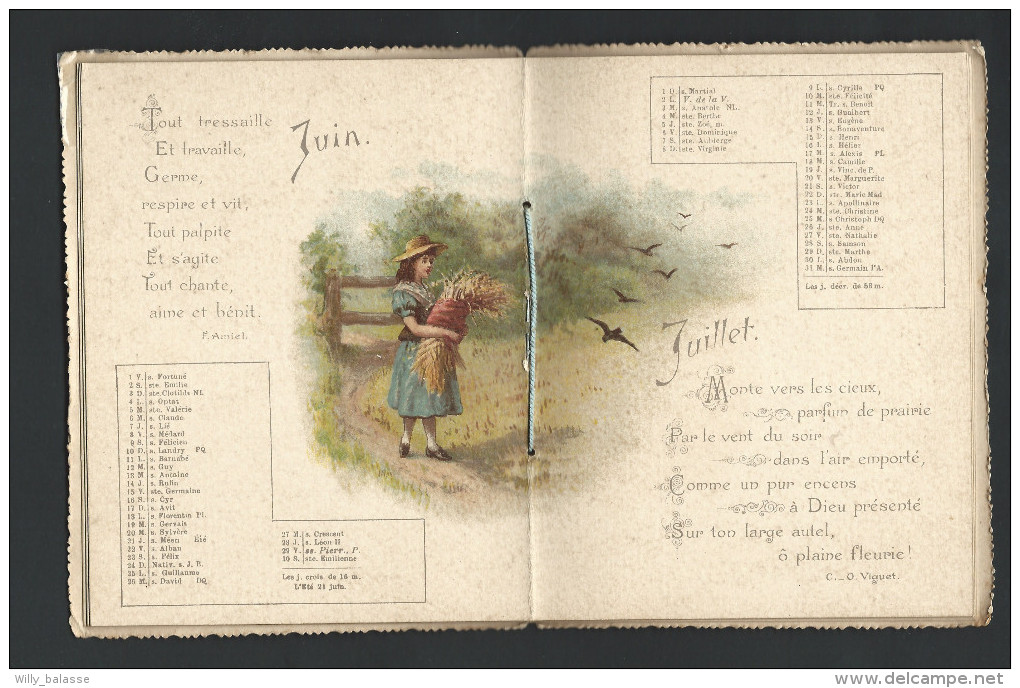 Tout tressaille
Et travaille,
Germe,
respire et vit,
Tout palpite
Et s'agite
Tout chante,
aime et bénit.
F. Amiel.
Juin.
1 V. s. Fortuné
2 S. ste. Emilie
3 D. ste. Clotilde NL
4 L. s. Optat
5 M. ste. Valérie
6 M. s. Claude
7 J. s. Lié
8 V. s. Médard
9 S. s. Félicien
10 D. s. Landry PQ
11 L. s. Barnabé
12 M. s. Guy
13 M. s. Antoine
14 J. s. Rufin
15 V. ste. Germaine
16 S. s. Cyr
17 D. s. Avit
18 L. s. Florentin PL
19 M. s. Gervais
20 M. s. Sylvère
21 J. s. Méen Été
22 V. s. Alban
23 S. s. Félix
24 D. Nativ. s. J. B.
25 L. s. Guillaume
26 M. s. David DQ
27 M. s. Crescent
28 J. s. Léon II
29 V. ss. Pierr., P.
10 S. ste. Emilienne
Les j. crois. de 16 m.
L'Eté 21 juin.
1 D. s. Martial
2 L. V. de la V.
3 M. s. Anatole NL.
4 M. ste. Berthe
5 J. ste. Zoé, m.
6 V. ste. Dominique
7 S. ste. Aubierge
8 D. ste. Virginie
9 L. s. Cyrille PQ
10 M. ste. Félicité
11 M. Tr. s. Benoît
12 J. s. Gualbert
13 V. s. Eugène
14 S. s. Bonaventure
15 D. s. Henri
16 L. s. Hélier
17 M. s. Alexis PL
18 M. s. Camille
19 J. s. Vinc. de P.
20 V. ste. Marguerite
21 S. s. Victor
22 D. ste. Marie Mad
23 L. s. Apollinaire
24 M. ste. Christine
25 M. s. Christoph DQ
26 J. ste. Anne
27 V. ste. Nathalie
28 S. s. Samson
29 D. ste. Marthe
30 L. s. Abdon
31 M. s. Germain l'A.
Les j. décr. de 58 m.
Juillet.
Monte vers les cieux,
parfum de prairie
Par le vent du soir
dans l'air emporté,
Comme un pur encens
à Dieu présenté
Sur ton large autel,
ô plaine fleurie!
C.-O. Viguet.
Willy_balasse
delcampe.net